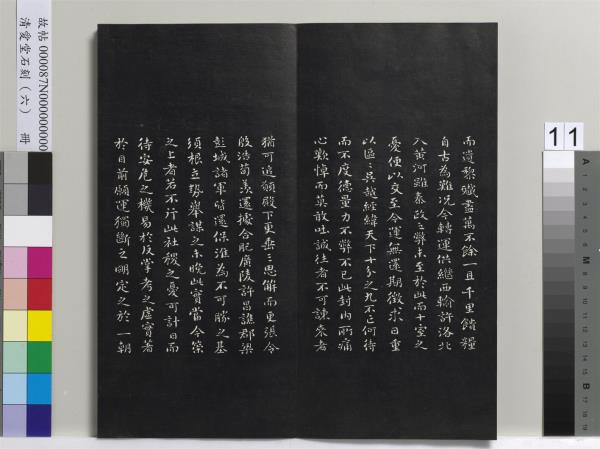 故帖 000087N000000000
清愛堂石刻（六） 冊
11
而遺黎殲盡萬不餘一且千里饋糧
自古為難況今轉運供繼西輸許洛北
入黃河雖秦政之弊未至於此而十室之
憂便以交至今運無還期徵求日重
以區〻吳越經緯天下十分之九不亡何待
而不度德量力不弊不已此封內所痛
心歎悼而莫敢吐誠往者不可諫來者
猶可追願殿下更垂三思解而更張令
殷浩荀羨還據合肥廣陵許昌譙郡梁
彭城諸軍皆還保淮為不可勝之基
須根立勢舉謀之未晚此實當今策
之上者若不行此社稷之憂可計日而
待安危之機易於反掌考之虛實著
於目前願運獨斷之明定之於一朝